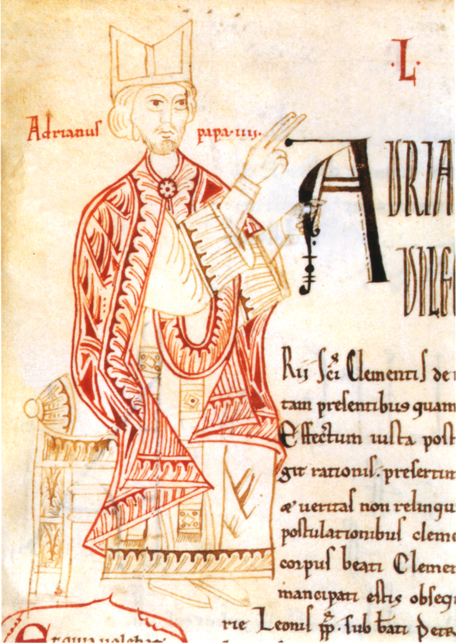 ·L·
Adrianus papa·iiii·
ADRIA
DILE
Rii sci Clementis de
tam presentibus quam
Effectum iusta post
git rationis. presertim
æ veritas non relinqu
postulationibus cleme
corpus beati Clemen
mancipati estis obseq
rie Leonis pp. sub bati Petr